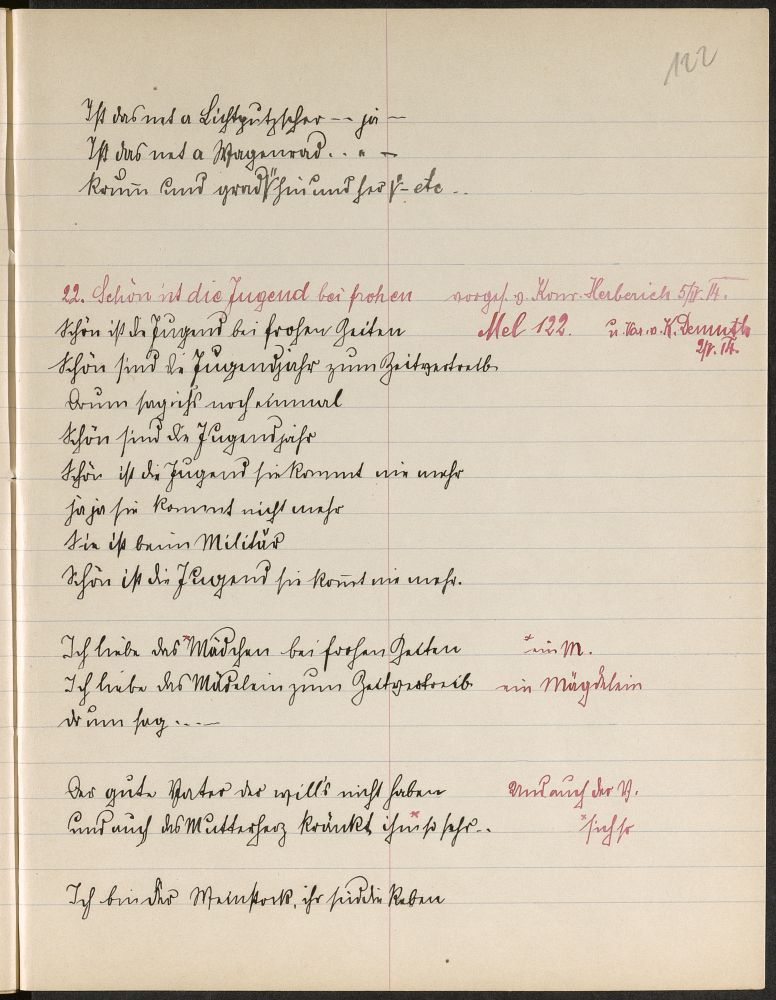 122
Ist das net a Lichtputzscher -- ja -
Ist das net a Wagenrad . . „ -
Krum̄ und grad hin und her - etc ..
22. Schön ist die Jugend bei frohen vorges. v. Konr. Herberich 5/IV. 14.
Schön ist die Jugend bei frohen Zeiten Mel 122. u. Var. v. K. Demuth
Schön sind die Jugendjahr zum Zeitvertreib 2/V. 14.
Drum sag ichs noch einmal
Schön sind die Jugendjahr
Schön ist die Jugend sie kommt nie mehr
ja ja sie kommt nicht mehr
Sie ist beim Militär
Schön ist die Jugend sie kom̄t nie mehr.
Ich liebe das *Mädchen bei frohen Zeiten *ein M.
Ich liebe das Mädelein zum Zeitvertreib ein Mägdelein
drum sag ..--
Der gute Vater der will's nicht haben Und auch der V.
und auch das Mutterherz kränkt ihm* so sehr.. *sich so
Ich bin der Weinstock, ihr seid die Reben